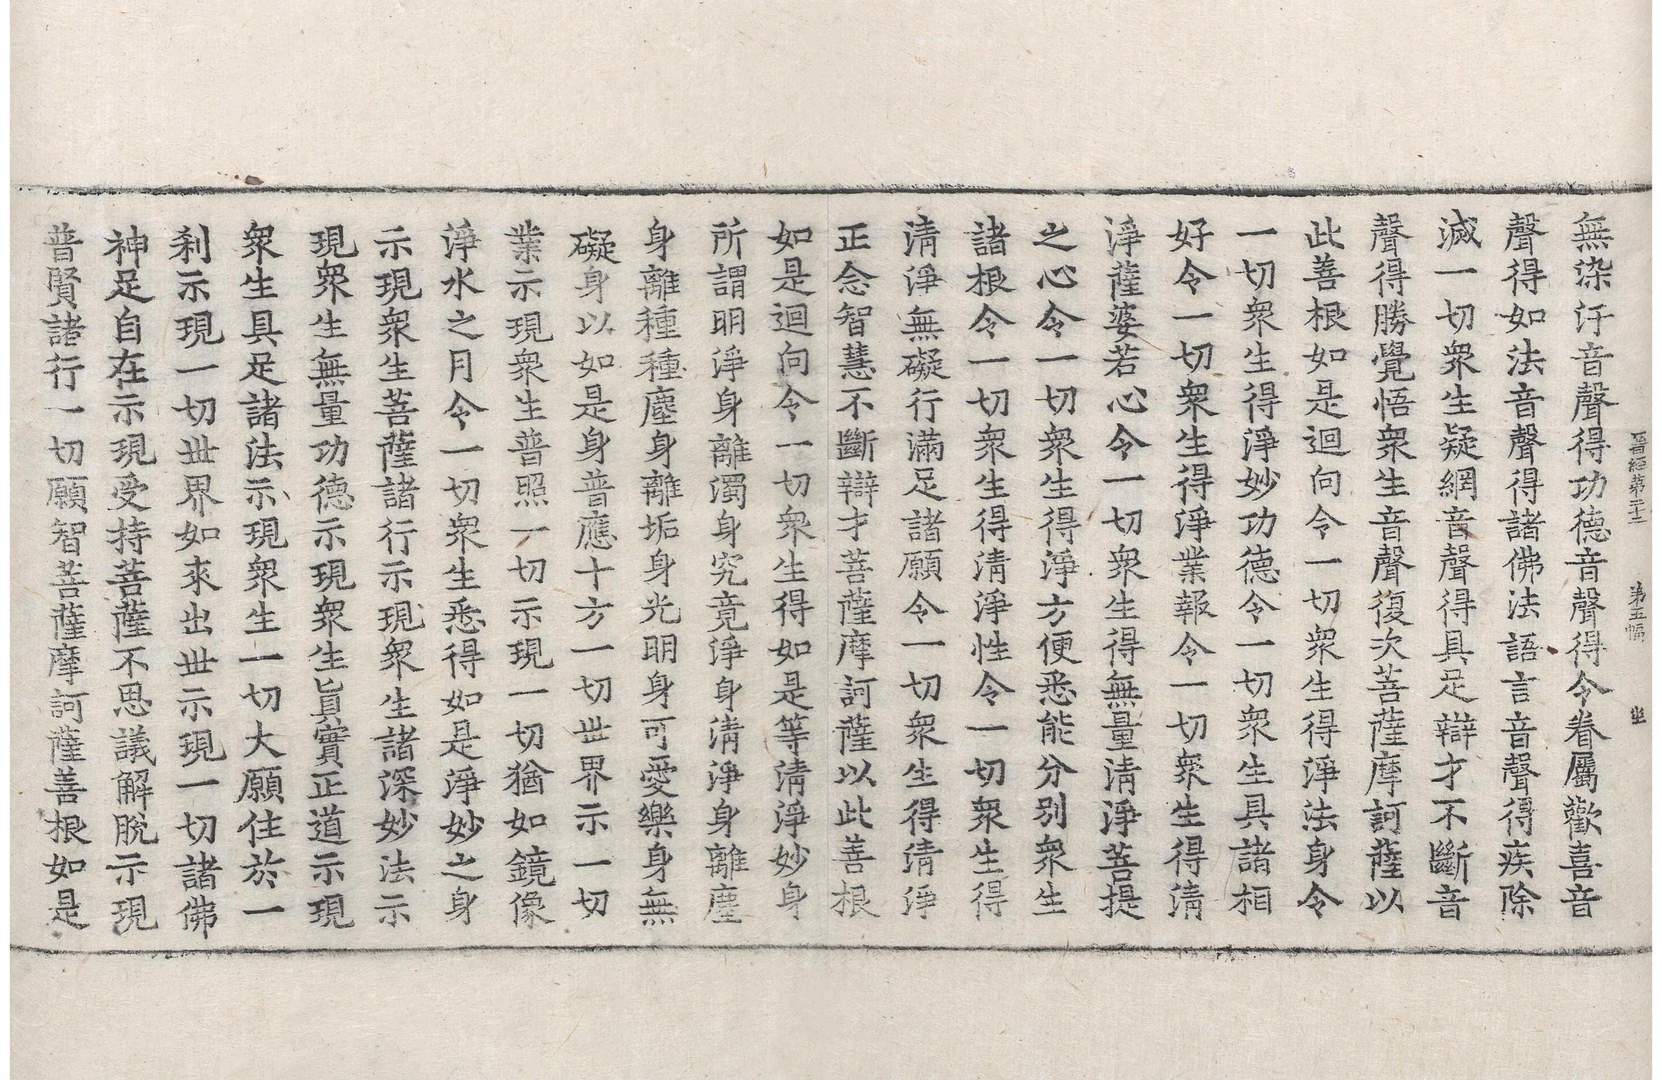 晉經第二十二 第五幅 坐
無染汙音聲得功德音聲得令眷屬歡喜音
聲得如法音聲得諸佛法語言音聲得疾除
滅一切衆生疑網音聲得具足辯才不斷音
聲得勝覺悟衆生音聲復次菩薩摩訶薩以
此善根如是迴向令一切衆生得淨法身令
一切衆生得淨妙功德令一切衆生具諸相
好令一切衆生得淨業報令一切衆生得清
淨薩婆若心令一切衆生得無量清淨菩提
之心令一切衆生得淨方便悉能分別衆生
諸根令一切衆生得清淨性令一切衆生得
清淨無礙行滿足諸願令一切衆生得清淨
正念智慧不斷辯才菩薩摩訶薩以此善根
如是迴向令一切衆生得如是等清淨妙身
所謂明淨身離濁身究竟淨身清淨身離塵
身離種種塵身離垢身光明身可愛樂身無
礙身以如是身普應十方一切世界示一切
業示現衆生普照一切示現一切猶如鏡像
淨水之月令一切衆生悉得如是淨妙之身
示現衆生菩薩諸行示現衆生諸深妙法示
現衆生無量功德示現衆生眞實正道示現
衆生具足諸法示現衆生一切大願住於一
刹示現一切世界如來出世示現一切諸佛
神足自在示現受持菩薩不思議解脫示現
普賢諸行一切願智菩薩摩訶薩善根如是